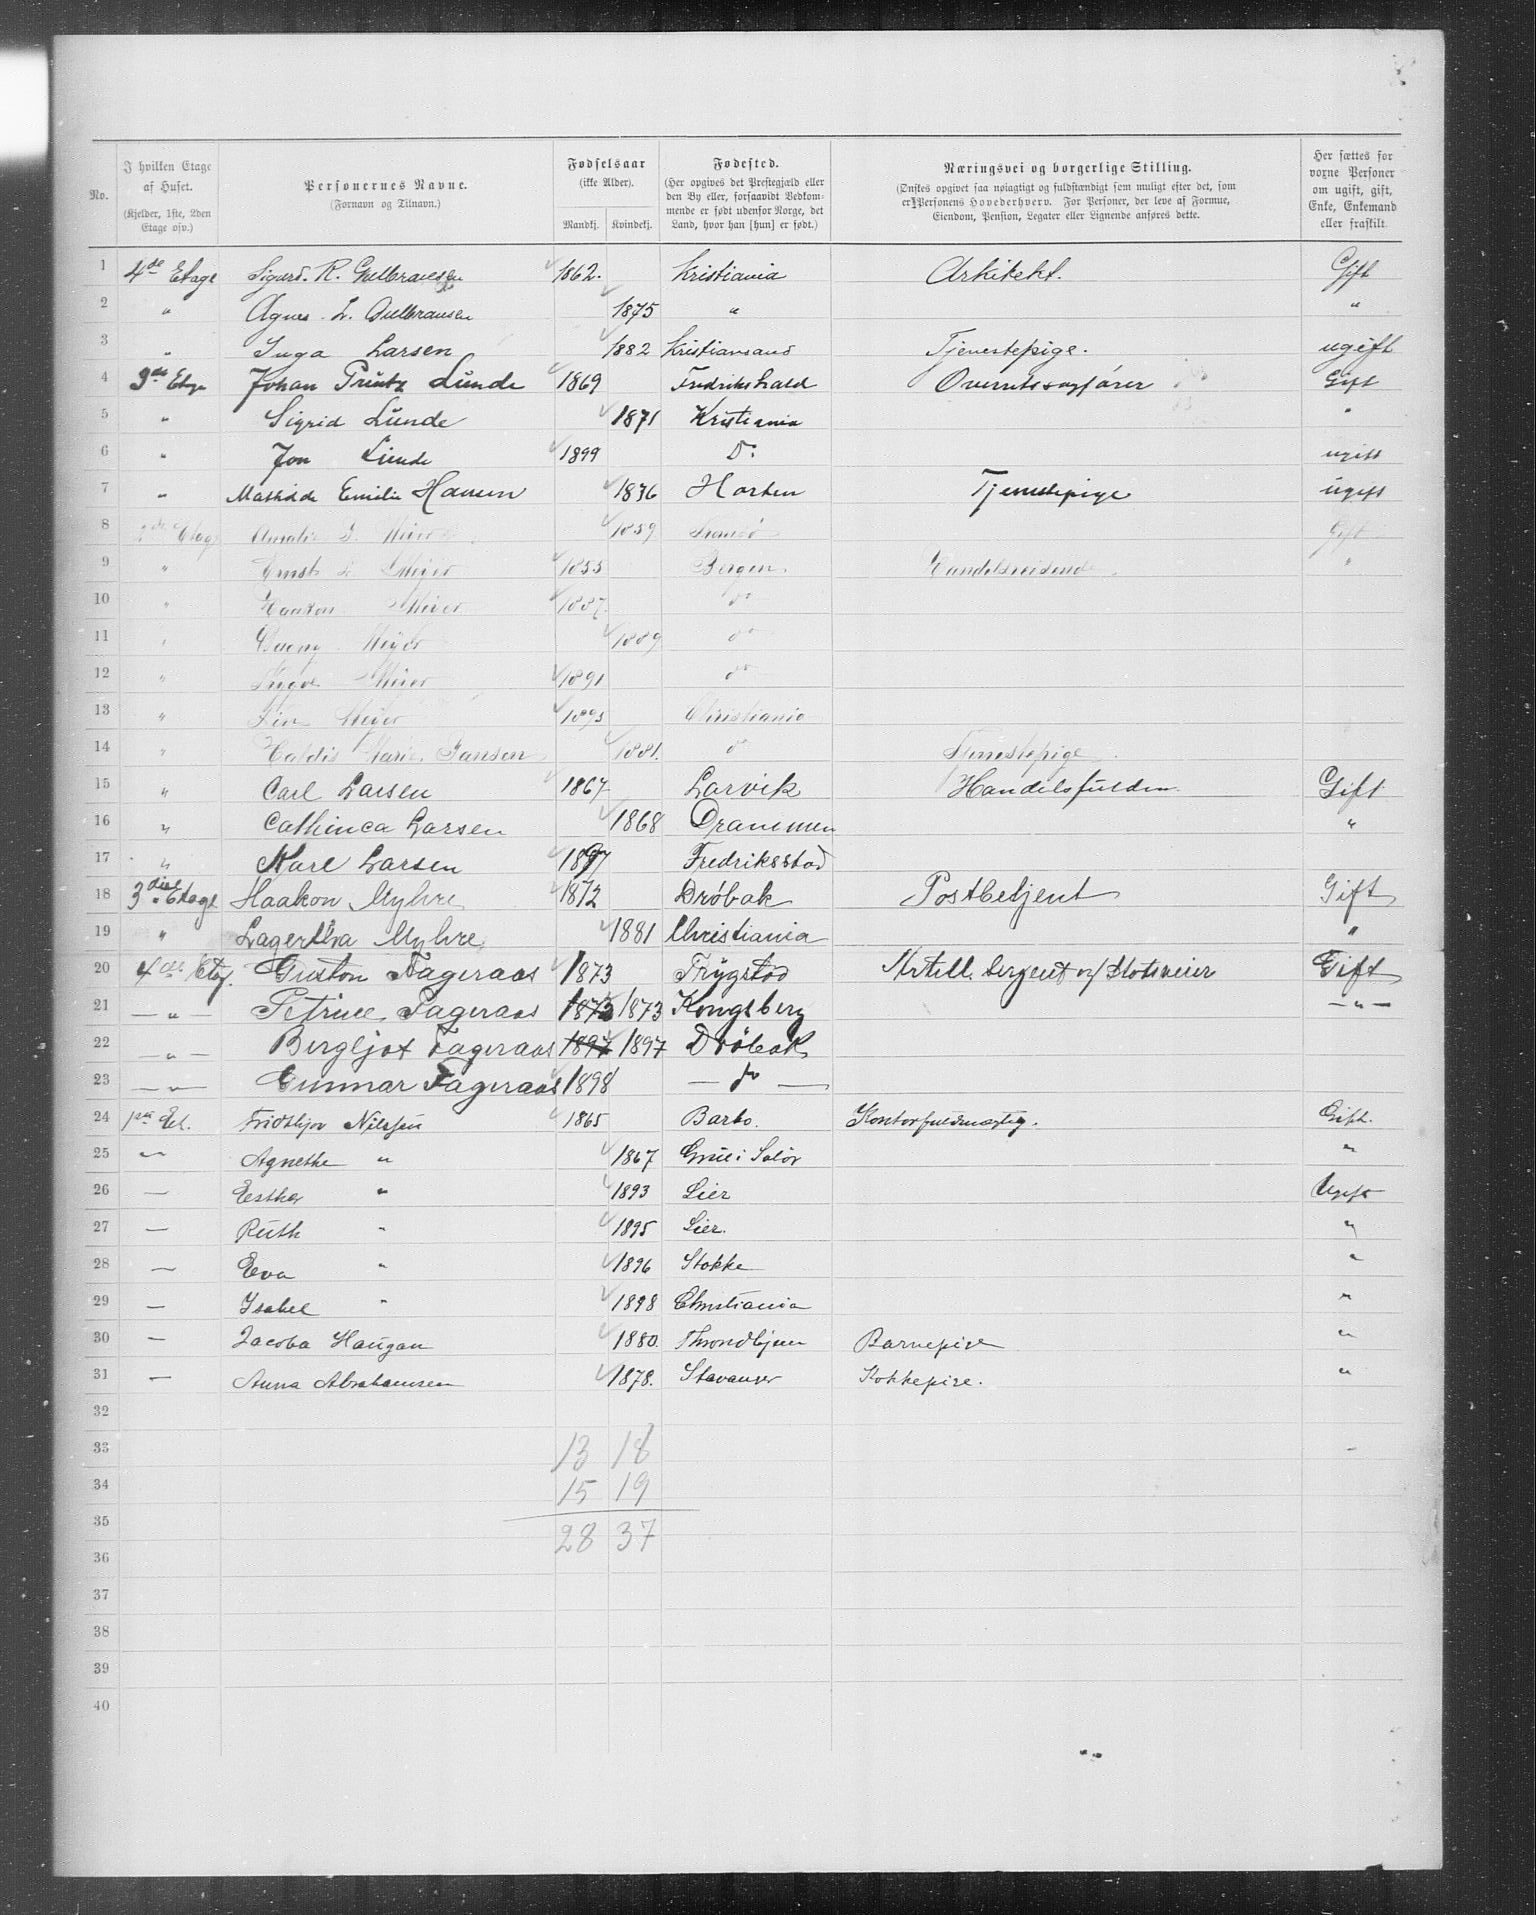 No.
I hvilken Etage af Huset.
(Kjelder, 1ste, 2den Etage osv.)
Personernes Navne.
(Fornavn og Tilnavn.)
Fødselsaar
(ikke Alder).
Mandkj.
Kvindekj.
Fødested.
(Her opgives det Prestegjæld eller den By eller, forsaavidt Vedkommende er født udenfor Norge, det Land, hvor han [hun] er født.)
Næringsvei og borgerlige Stilling.
(Ønskes opgivet saa nøiagtigt og fuldstændigt som muligt efter det, som er Personens Hovederhverv. For Personer, der leve af Formue, Eiendom, Pension, Legater eller Lignende anføres dette.
Her sættes for voxne Personer om ugift, gift, Enke, Enkemand eller fraskilt.
1 4de Etage Sigurd. R. Gulbransen 1862. Kristiania Arkitekt. Gift
2 " Agnes L. Gulbransen 1875 " "
3 " Inga Larsen 1882 Kristiansand Tjenestepige. ugift
4 3de Etage Johan Printz Lunde 1869 Fredrikshald Overretssagfører Gift
5 " Sigrid Lunde 1871 Kristiania "
6 " Jon Lunde 1899 Do ugift
7 " Mathilde Emilie Hansen 1876 Horten Tjenestepige ugift
8 Etage Amalie Meier 1859 Tromsø Gift
9 " Ernst Meier 1855 Bergen. Handelsreisende "
10 " Haakon Meier 1887. do
11 " Meyer 1889 do
12 " Meier 1891 do
13 " Meyer 1895 Christiania
14 " Marie Jansen 1881. do Tjenestepige
15 " Carl Larsen 1867 Larvik Handelsfuldm. Gift
16 " Cathinca Larsen 1868 Drammen "
17 " Karl Larsen 1897 Fredriksstad
18 3die Etage Haakon Myhre 1872 Drøbak Postbetjent Gift
19 " Lagertha Myhre 1881 Christiania "
20 4de Etg. Fageraas 1873 Trygstad Artill. Sergent Gift
21 — " — Petrine Fageraas 1873 1873 Kongsberg — " —
22 — " — Bergljot Fageraas 1897 1897 Drøbak
23 — " — Gunnar Fageraas 1898 — do —
24 1ste Et. Fridthjov Nilssen 1865 Barbo. Kontorfuldmægtig. Gift.
25 " Agnethe " 1867 Grue i Solør "
26 — Esther " 1893 Lier Ugift
27 — Ruth " 1895 Lier. "
28 — Eva " 1896 Stokke "
29 — Isabel " 1898 Christiania "
30 — Jacoba Haugan 1880. Throndhjem Barnepige "
31 — Anna Abrahamsen 1878. Stavanger Kokkepige. "
32
33 13 18
34 15 19
35 28 37
36
37
38
39
40